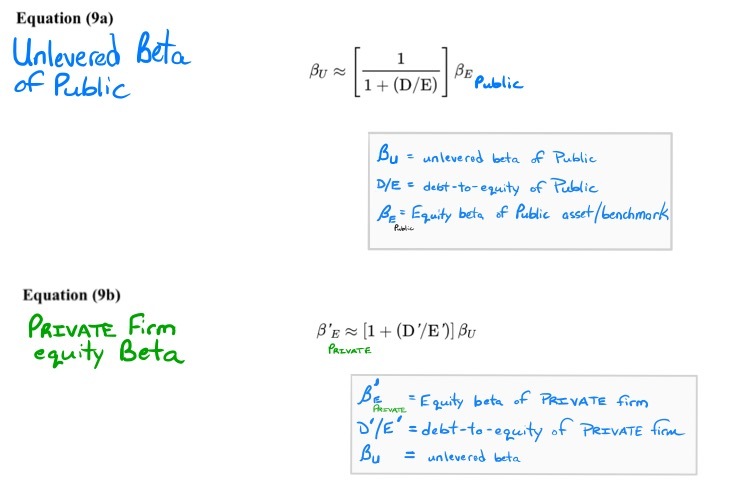 Equation (9a)
Unlevered Beta
of Public
βU ≈ [1 / (1 + (D/E))] βE Public
βU = unlevered beta of Public
D/E = debt-to-equity of Public
βE Public = Equity beta of Public asset/benchmark
Equation (9b)
PRIVATE Firm
equity Beta
β′E ≈ [1 + (D′/E′)] βU
PRIVATE
β′E PRIVATE = Equity beta of PRIVATE firm
D′/E′ = debt-to-equity of PRIVATE firm
βU = unlevered beta